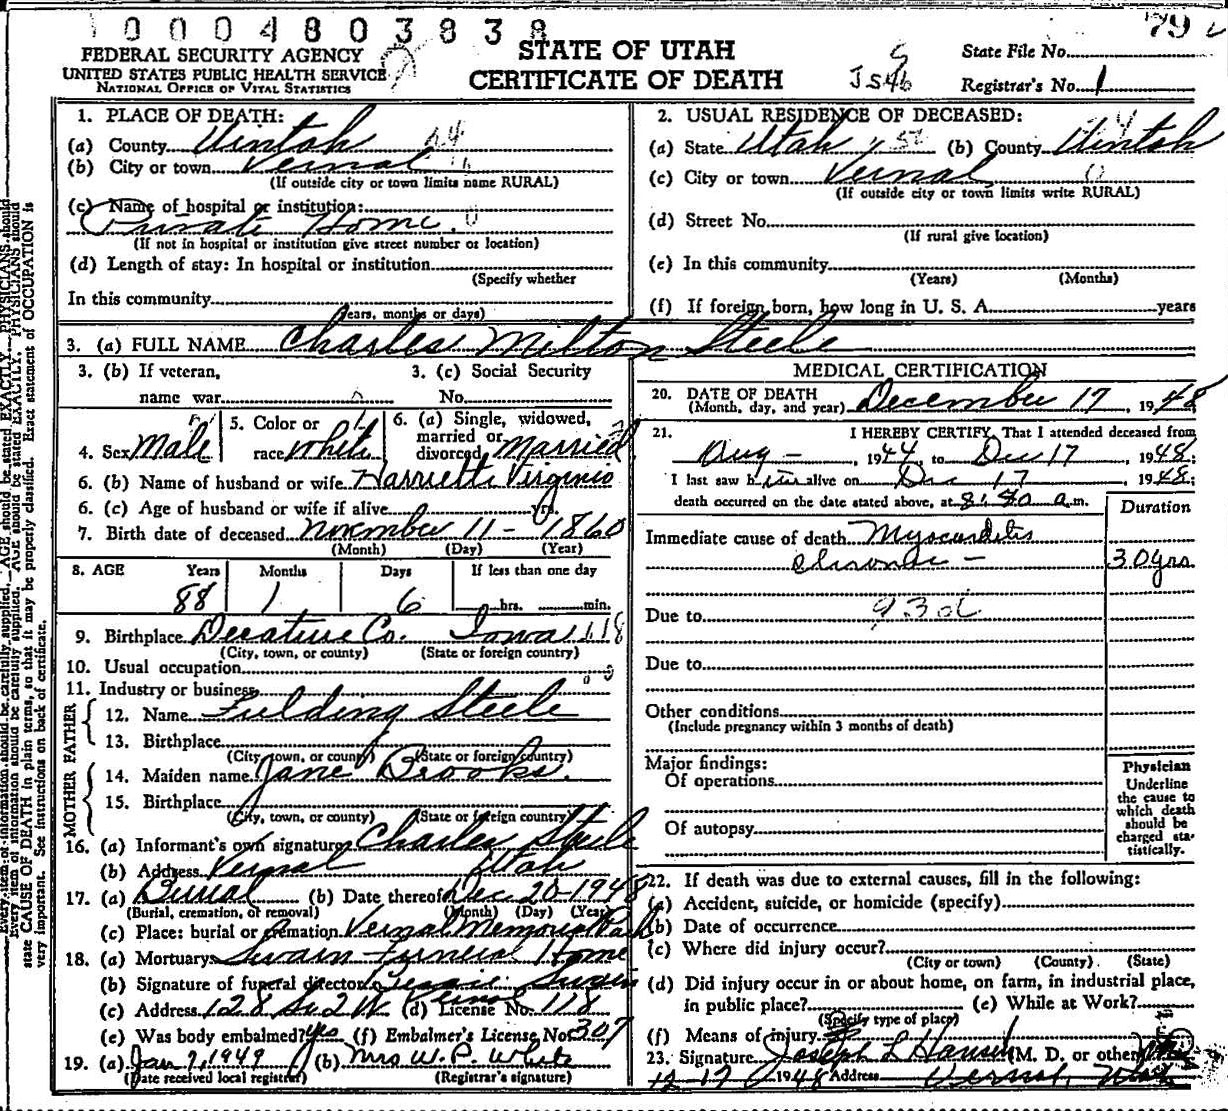 0004803838
792
FEDERAL SECURITY AGENCY
UNITED STATES PUBLIC HEALTH SERVICE
NATIONAL OFFICE OF VITAL STATISTICS
STATE OF UTAH
CERTIFICATE OF DEATH
State File No.
Registrar's No. 1
1. PLACE OF DEATH:
(a) County Uintah
(b) City or town Vernal
(If outside city or town limits name RURAL)
(c) Name of hospital or institution:
Private Home.
(If not in hospital or institution give street number or location)
(d) Length of stay: In hospital or institution
(Specify whether
In this community
years, months or days)
2. USUAL RESIDENCE OF DECEASED:
(a) State Utah (b) County Uintah
(c) City or town Vernal
(If outside city or town limits write RURAL)
(d) Street No.
(If rural give location)
(e) In this community
(Years) (Months)
(f) If foreign born, how long in U. S. A. years
3. (a) FULL NAME Charles Milton Steele
3. (b) If veteran,
name war
3. (c) Social Security
No.
4. Sex Male
5. Color or
race White
6. (a) Single, widowed,
married or
divorced Married
6. (b) Name of husband or wife Harriette Virginia
6. (c) Age of husband or wife if alive yrs.
7. Birth date of deceased November 11 - 1860
(Month) (Day) (Year)
8. AGE Years Months Days If less than one day
88 1 6 hrs. min.
9. Birthplace Decature Co. Iowa
(City, town, or county) (State or foreign country)
10. Usual occupation
11. Industry or business
FATHER
12. Name Fielding Steele
13. Birthplace
(City, town, or county) (State or foreign country)
MOTHER
14. Maiden name Jane Brooks.
15. Birthplace
(City, town, or county) (State or foreign country)
16. (a) Informant's own signature Charles Steele
(b) Address Vernal Utah
17. (a) Burial (b) Date thereof Dec 20-1948
(Burial, cremation, or removal) (Month) (Day) (Year)
(c) Place: burial or cremation Vernal Memorial Park
18. (a) Mortuary Swain Funeral Home
(b) Signature of funeral director Bessie Swain
(c) Address 128 So 2 W Vernal (d) License No. 118
(e) Was body embalmed? yes (f) Embalmer's License No. 307
19. (a) Jan 7, 1949 (b) Mrs W. P. White
(Date received local registrar) (Registrar's signature)
MEDICAL CERTIFICATION
20. DATE OF DEATH
(Month, day, and year) December 17, 1948
21. I HEREBY CERTIFY, That I attended deceased from
Aug - , 1944, to Dec 17 , 1948;
I last saw him alive on Dec 17 , 1948;
death occurred on the date stated above, at 8:30 a.m.
Duration
Immediate cause of death Myocarditis
chronic - 30 yrs
Due to 93d
Due to
Other conditions
(Include pregnancy within 3 months of death)
Major findings:
Of operations
Of autopsy
Physician
Underline
the cause to
which death
should be
charged sta-
tistically.
22. If death was due to external causes, fill in the following:
(a) Accident, suicide, or homicide (specify)
(b) Date of occurrence
(c) Where did injury occur?
(City or town) (County) (State)
(d) Did injury occur in or about home, on farm, in industrial place,
in public place? (e) While at Work?
(Specify type of place)
(f) Means of injury
23. Signature Joseph L Hansen (M. D. or other)
12-17 1948 Address Vernal, Utah
Every item of information should be carefully supplied. AGE should be stated EXACTLY. PHYSICIANS should
state CAUSE OF DEATH in plain terms, so that it may be properly classified. Exact statement of OCCUPATION is
very important. See instructions on back of certificate.